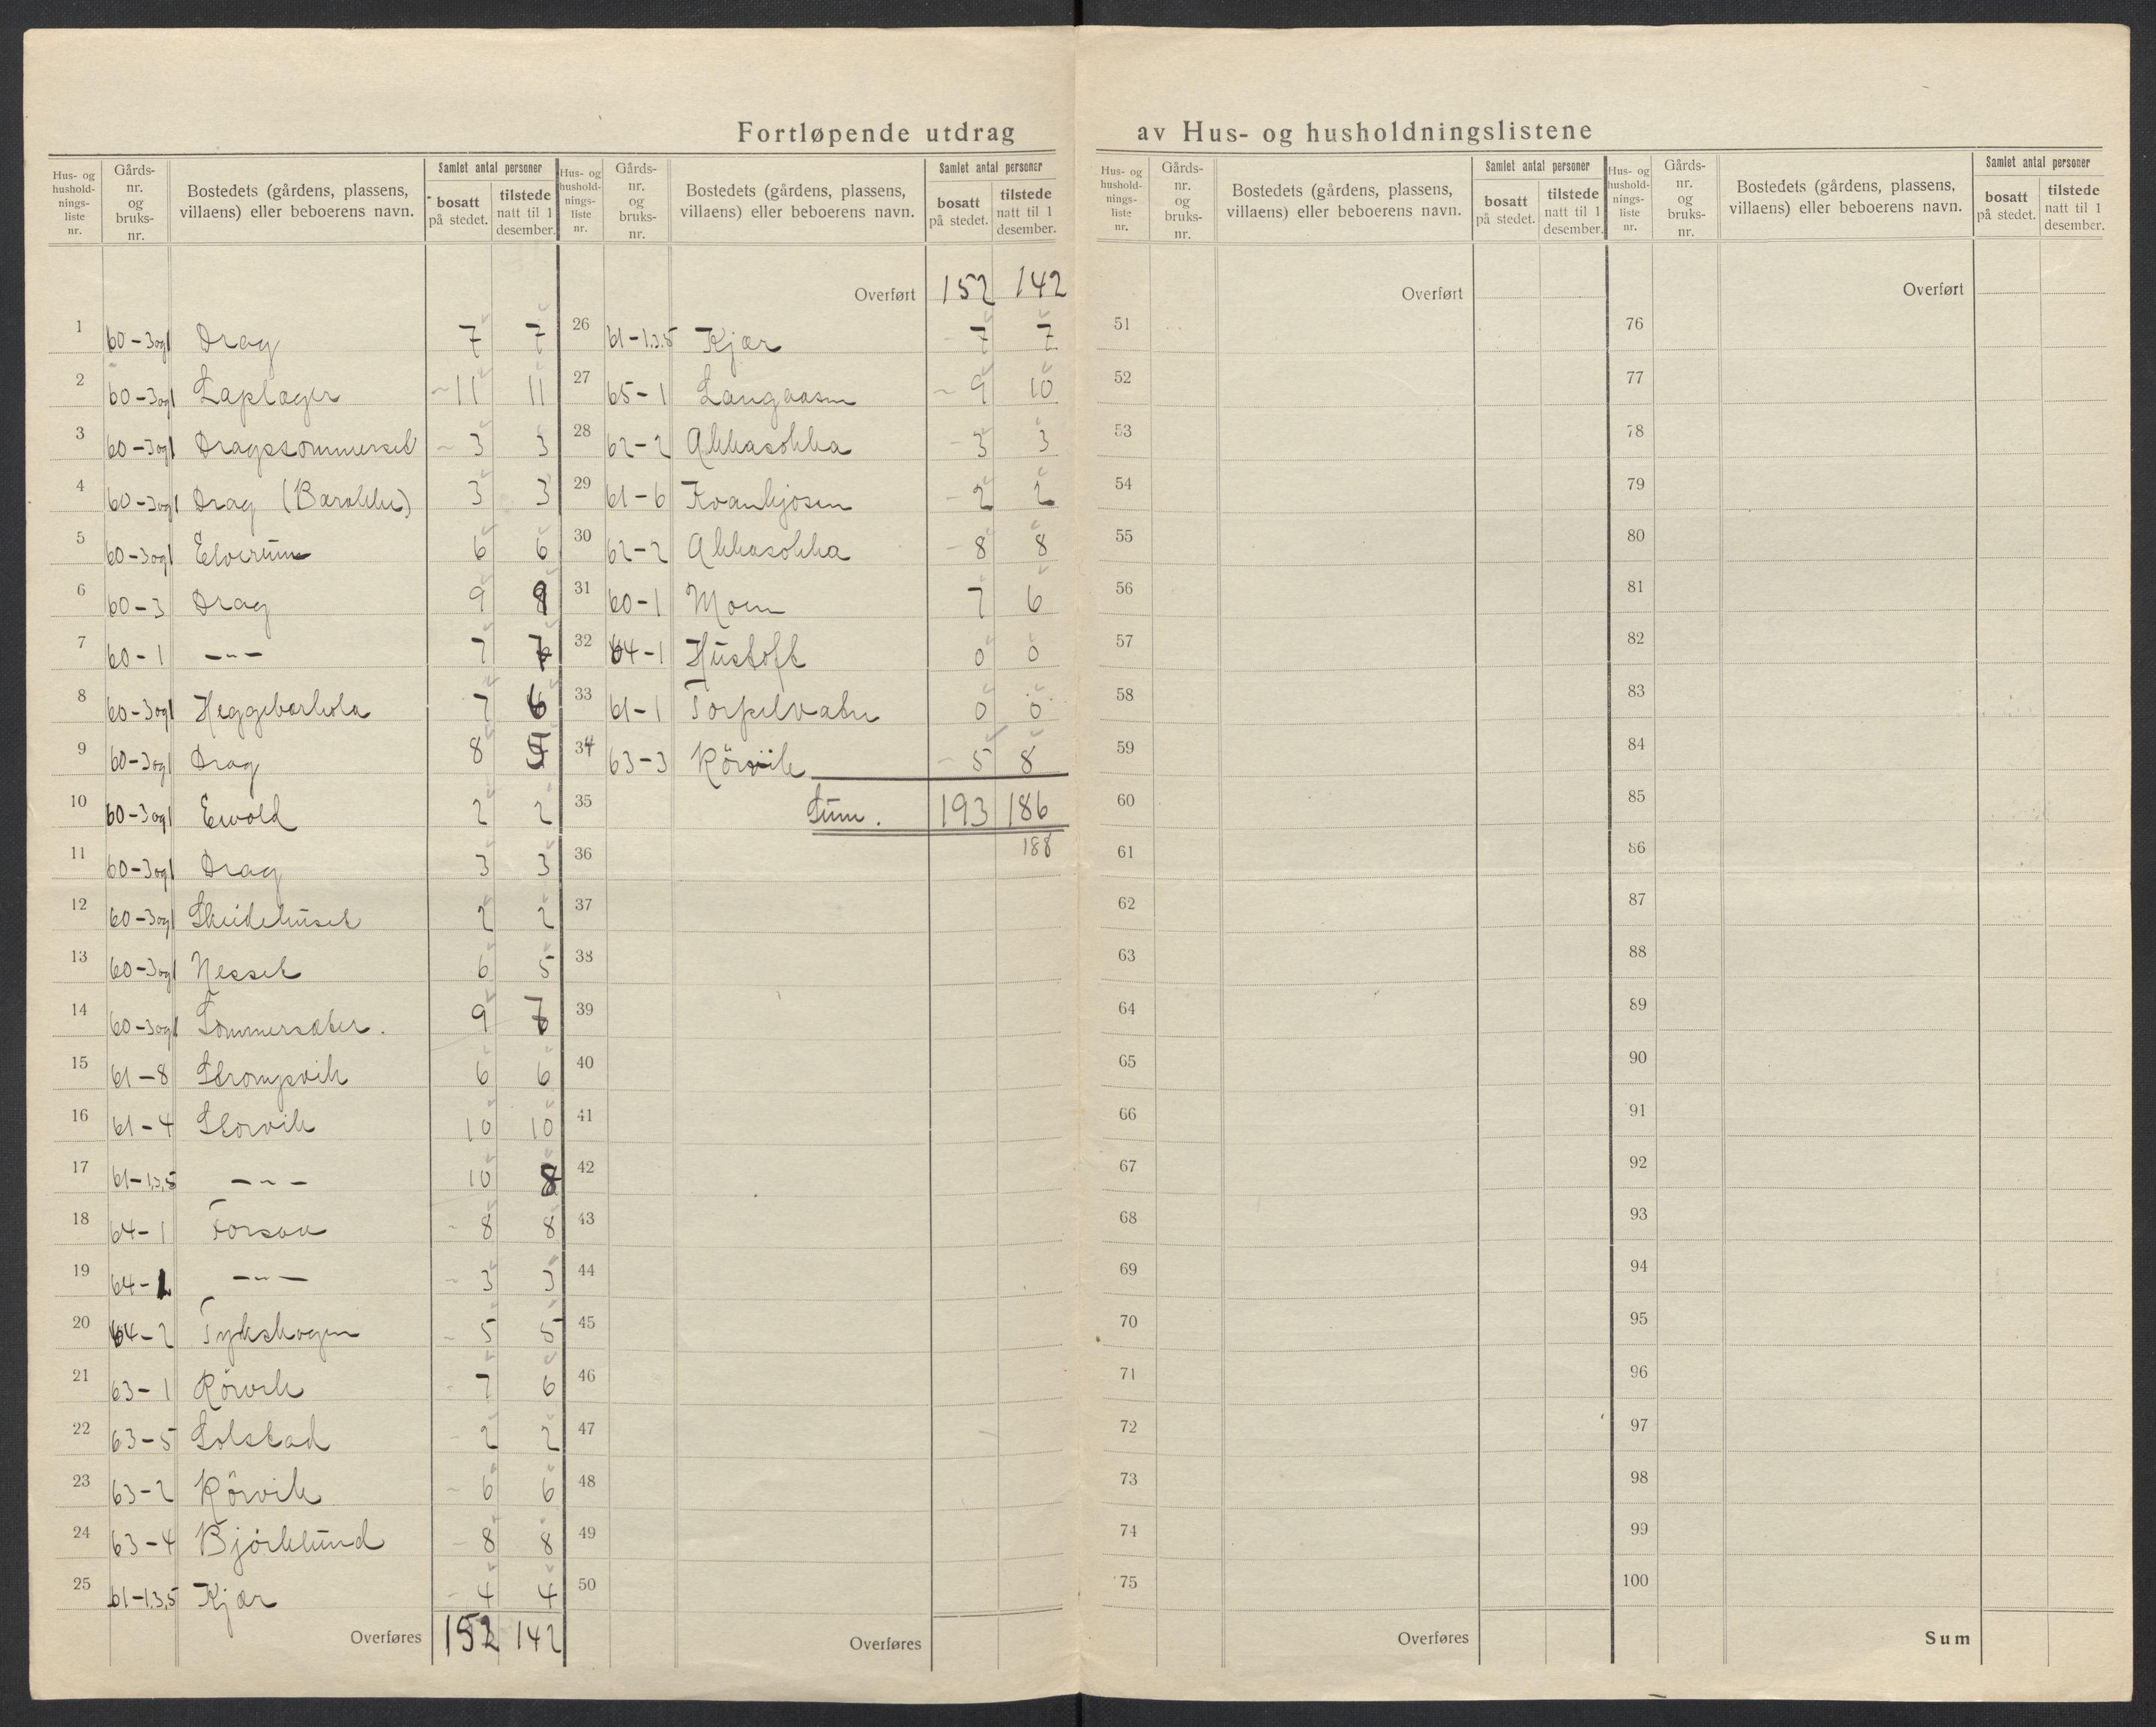 Fortløpende utdrag av Hus- og husholdningslistene
Hus- og hushold-nings-liste nr. | Gårds-nr. og bruks-nr. | Bostedets (gårdens, plassens, villaens) eller beboerens navn. | Samlet antal personer | bosatt på stedet. | tilstede natt til 1 desember.
1 60-3og1 Drag 7 7
2 60-3og1 Laplæger 11 11
3 60-3og1 Dragssommerset 3 3
4 60-3og1 Drag (Barakke) 3 3
5 60-3og1 Elverum 6 6
6 60-3 Drag 9 8
7 60-1 -"- 7 7
8 60-3og1 Heggebærhola 7 6
9 60-3og1 Drag 8 5
10 60-3og1 Evold 2 2
11 60-3og1 Drag 3 3
12 60-3og1 Skeidehuset 2 2
13 60-3og1 Nesset 6 5
14 60-3og1 Sommersæter. 9 7
15 61-8 Strompvik 6 6
16 61-4 Storvik 10 10
17 61-1,3,5 -"- 10 8
18 64-1 Forsaa 8 8
19 64-1 -"- 3 3
20 64-2 Tykskogen 5 5
21 63-1 Rörvik 7 6
22 63-5 Solstad 2 2
23 63-2 Rörvik 6 6
24 63-4 Björklund 8 8
25 61-1,3,5 Kjær 4 4
Overføres 152 142
Hus- og hushold-nings-liste nr. | Gårds-nr. og bruks-nr. | Bostedets (gårdens, plassens, villaens) eller beboerens navn. | Samlet antal personer | bosatt på stedet. | tilstede natt til 1 desember.
Overført 152 142
26 61-1,3,5 Kjær 7 7
27 65-1 Langaasen 9 10
28 62-2 Akkasokka 3 3
29 61-6 Kvankjosen 2 2
30 62-2 Akkasokka 8 8
31 60-1 Moen 7 6
32 64-1 Hustoft 0 0
33 61-1 Torpelvatn 0 0
34 63-3 Rörvik 5 8
35 Sum. 193 186
36 188
37
38
39
40
41
42
43
44
45
46
47
48
49
50
Overføres
Hus- og hushold-nings-liste nr. | Gårds-nr. og bruks-nr. | Bostedets (gårdens, plassens, villaens) eller beboerens navn. | Samlet antal personer | bosatt på stedet. | tilstede natt til 1 desember.
Overført
51
52
53
54
55
56
57
58
59
60
61
62
63
64
65
66
67
68
69
70
71
72
73
74
75
Overføres
Hus- og hushold-nings-liste nr. | Gårds-nr. og bruks-nr. | Bostedets (gårdens, plassens, villaens) eller beboerens navn. | Samlet antal personer | bosatt på stedet. | tilstede natt til 1 desember.
Overført
76
77
78
79
80
81
82
83
84
85
86
87
88
89
90
91
92
93
94
95
96
97
98
99
100
Sum